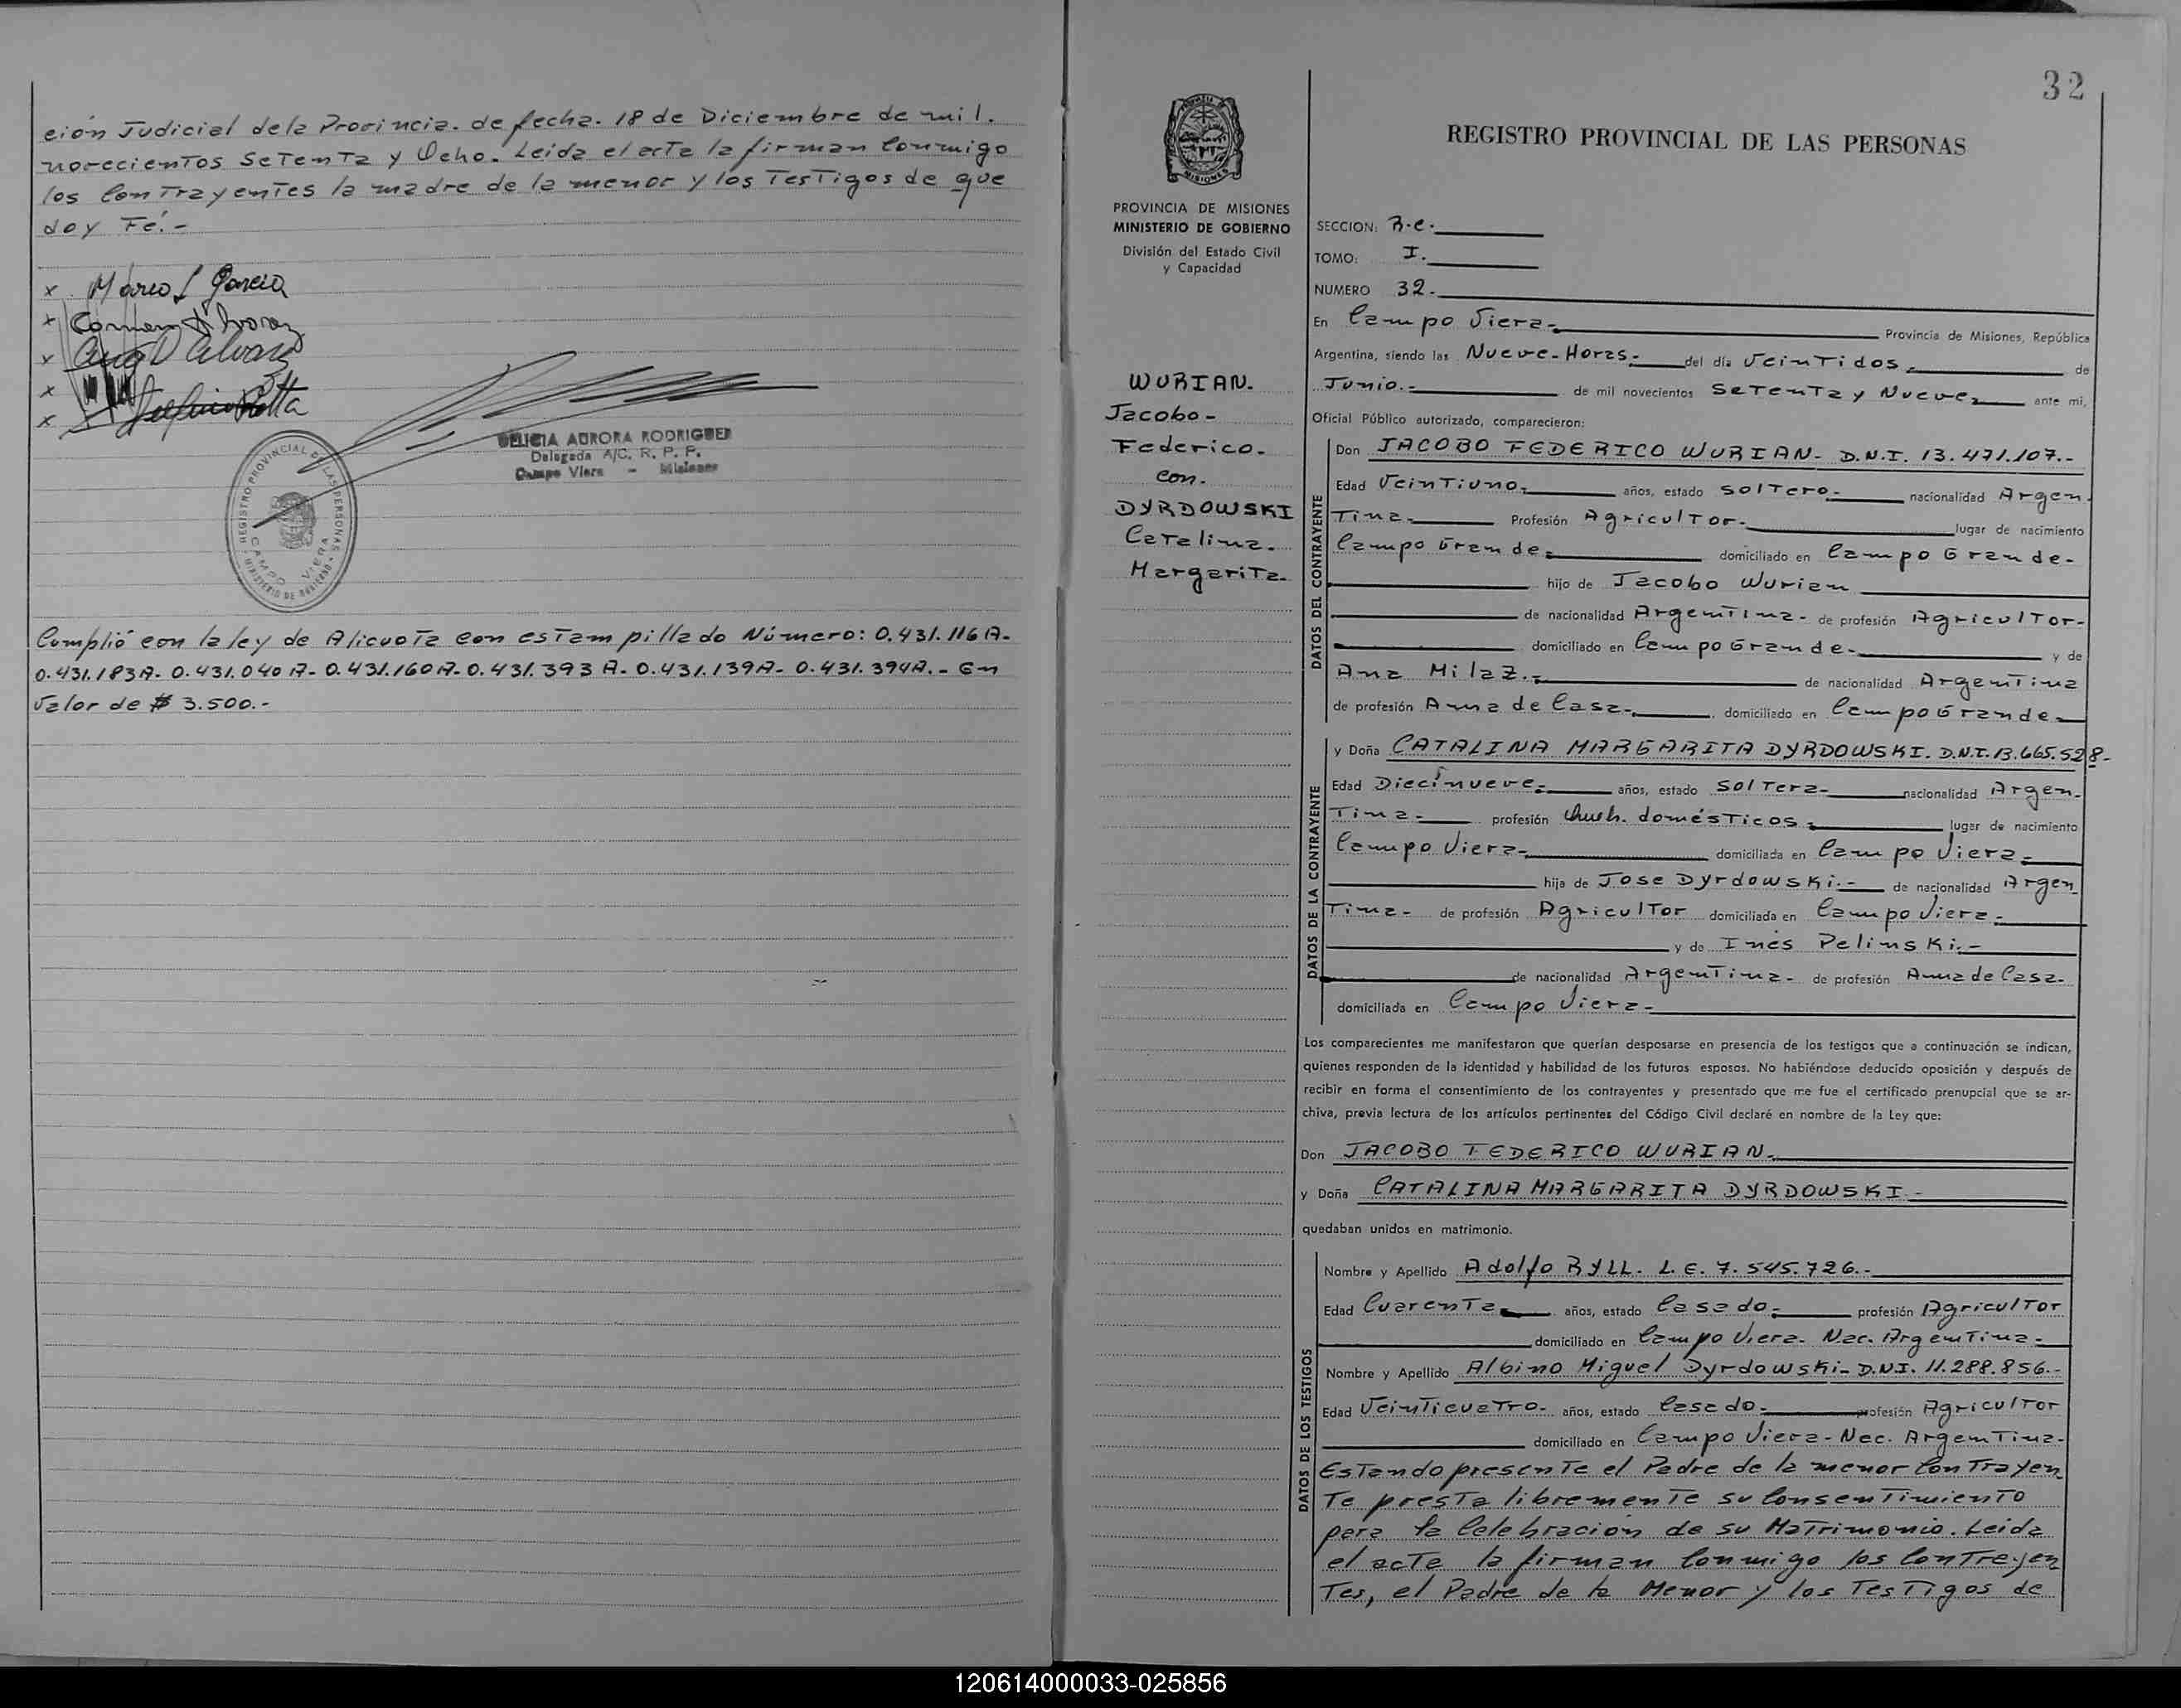 ción Judicial de la Provincia. de fecha. 18 de Diciembre de mil.
novecientos Setenta y Ocho. Leida el acta la firman Conmigo
los Contrayentes la madre de la menor y los Testigos de que
doy Fé.-
x
x
x
x
x
DELICIA AURORA RODRIGUEZ
Delegada A/C. R. P. P.
Campo Viera - Misiones
REGISTRO PROVINCIAL DE LAS PERSONAS
CAMPO VIERA
MINISTERIO DE GOBIERNO
Cumplió con la ley de Alicuota con estampillado Número: 0.431.116A-
0.431.183A- 0.431.040A- 0.431.160A- 0.431.393A- 0.431.139A- 0.431.394A.- En
Valor de $ 3.500.-
32
PROVINCIA DE MISIONES
MINISTERIO DE GOBIERNO
División del Estado Civil
y Capacidad
WURIAN.
Jacobo-
Federico.
con.
DYRDOWSKI
Catalina.
Margarita.
REGISTRO PROVINCIAL DE LAS PERSONAS
SECCION: R.C.
TOMO: I.
NUMERO 32.
En Campo Viera- Provincia de Misiones, República
Argentina, siendo las Nueve-Horas- del día Veintidos- de
Junio.- de mil novecientos Setenta y Nueve- ante mi,
Oficial Público autorizado, comparecieron:
DATOS DEL CONTRAYENTE
Don JACOBO FEDERICO WURIAN- D.N.I. 13.471.107.-
Edad Veintiuno- años, estado Soltero- nacionalidad Argen-
tina- Profesión Agricultor- lugar de nacimiento
Campo Grande- domiciliado en Campo Grande-
hijo de Jacobo Wurian
de nacionalidad Argentina- de profesión Agricultor-
domiciliado en Campo Grande- y de
Ana Milaz.- de nacionalidad Argentina
de profesión Ama de Casa- domiciliado en Campo Grande-
DATOS DE LA CONTRAYENTE
y Doña CATALINA MARGARITA DYRDOWSKI. D.N.I. 13.665.528-
Edad Diecinueve- años, estado Soltera- nacionalidad Argen-
tina- profesión domésticos- lugar de nacimiento
Campo Viera- domiciliada en Campo Viera-
hija de Jose Dyrdowski.- de nacionalidad Argen
tina- de profesión Agricultor domiciliada en Campo Viera-
y de Inés Pelinski.-
de nacionalidad Argentina- de profesión Ama de Casa-
domiciliada en Campo Viera-
Los comparecientes me manifestaron que querían desposarse en presencia de los testigos que a continuación se indican,
quienes responden de la identidad y habilidad de los futuros esposos. No habiéndose deducido oposición y después de
recibir en forma el consentimiento de los contrayentes y presentado que me fue el certificado prenupcial que se ar-
chiva, previa lectura de los artículos pertinentes del Código Civil declaré en nombre de la Ley que:
Don JACOBO FEDERICO WURIAN-
y Doña CATALINA MARGARITA DYRDOWSKI.-
quedaban unidos en matrimonio.
DATOS DE LOS TESTIGOS
Nombre y Apellido Adolfo RYLL. L.E. 7.545.726.-
Edad Cuarenta- años, estado Casado- profesión Agricultor
domiciliado en Campo Viera- Nac. Argentina-
Nombre y Apellido Albino Miguel Dyrdowski- D.N.I. 11.288.856.-
Edad Veinticuatro- años, estado Casado- profesión Agricultor
domiciliado en Campo Viera- Nac. Argentina-
Estando presente el Padre de la menor Contrayen
te presta libremente su Consentimiento
para la Celebración de su Matrimonio. Leida
el acta la firman Conmigo los Contrayen
tes, el Padre de la Menor y los Testigos de
120614000033-025856